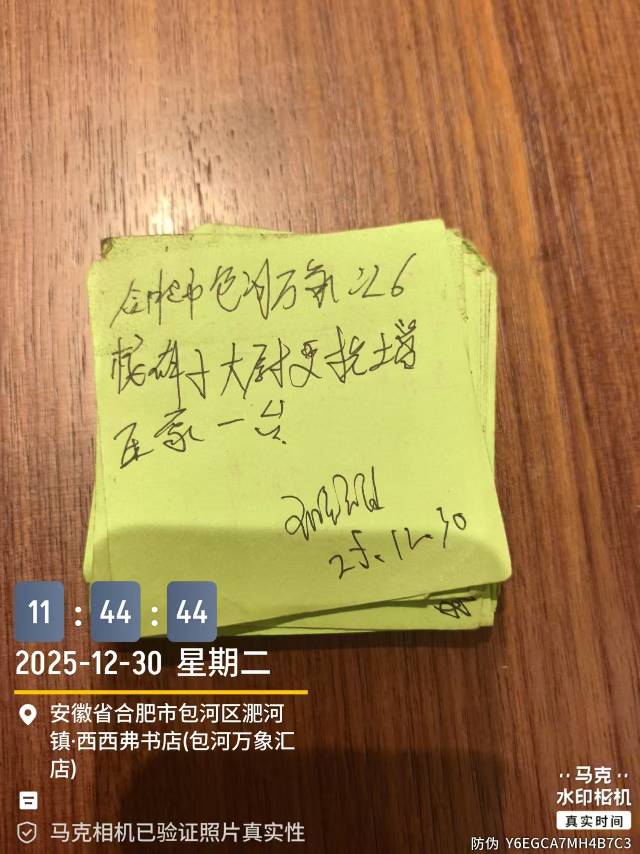 合肥市包河万象汇L6
楼胖子大厨更换增
压泵一台
25.12.30
11:44:44
2025-12-30 星期二
安徽省合肥市包河区淝河
镇·西西弗书店(包河万象汇
店)
马克相机已验证照片真实性
马克
水印相机
真实时间
防伪 Y6EGCA7MH4B7C3